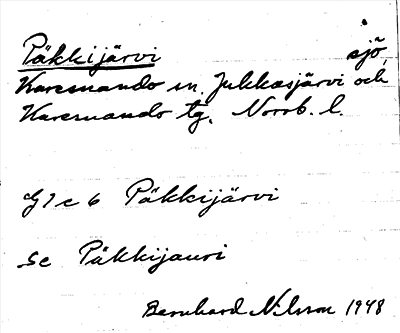 Päkkijärvi sjö,
Karesuando sn. Jukkasjärvi och
Karesuando tg. Norrb. l.
G1c6 Päkkijärvi
Se Päkkijauri
Bernhard Nilsson 1948